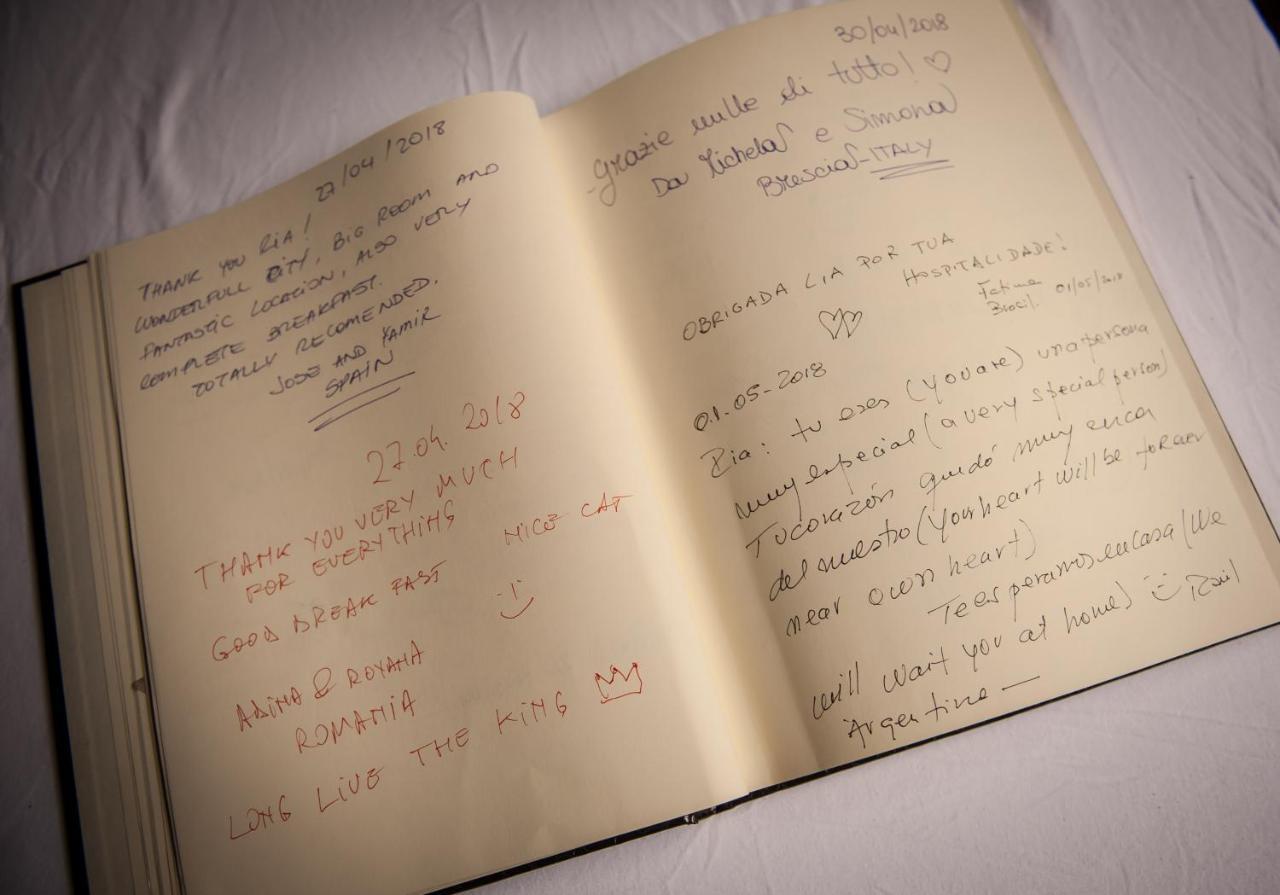 27/04/2018
THANK YOU RIA!
WONDERFULL CITY, BIG ROOM AND
FANTASTIC LOCATION, ALSO VERY
COMPLETE BREAKFAST.
TOTALLY RECOMENDED.
JOSE AND YAMIR
SPAIN
27.04.2018
THANK YOU VERY MUCH
FOR EVERYTHING
NICE CAT
GOOD BREAK FAST
:)
ADINA & ROXANA
ROMANIA
LONG LIVE THE KING
30/04/2018
Grazie mille di tutto! ♡
Da Michela e Simona
Brescia-ITALY
OBRIGADA LIA POR TUA
HOSPITALIDADE!
Fatima
Brasil 01/05/2018
01-05-2018
Ria: tu eres (you are) una persona
muy especial (a very special person)
Tu corazón quedó muy cerca
del nuestro (your heart will be forever
near own heart)
Te esperamos en casa (We
will wait you at home) :) Raúl
Argentina —